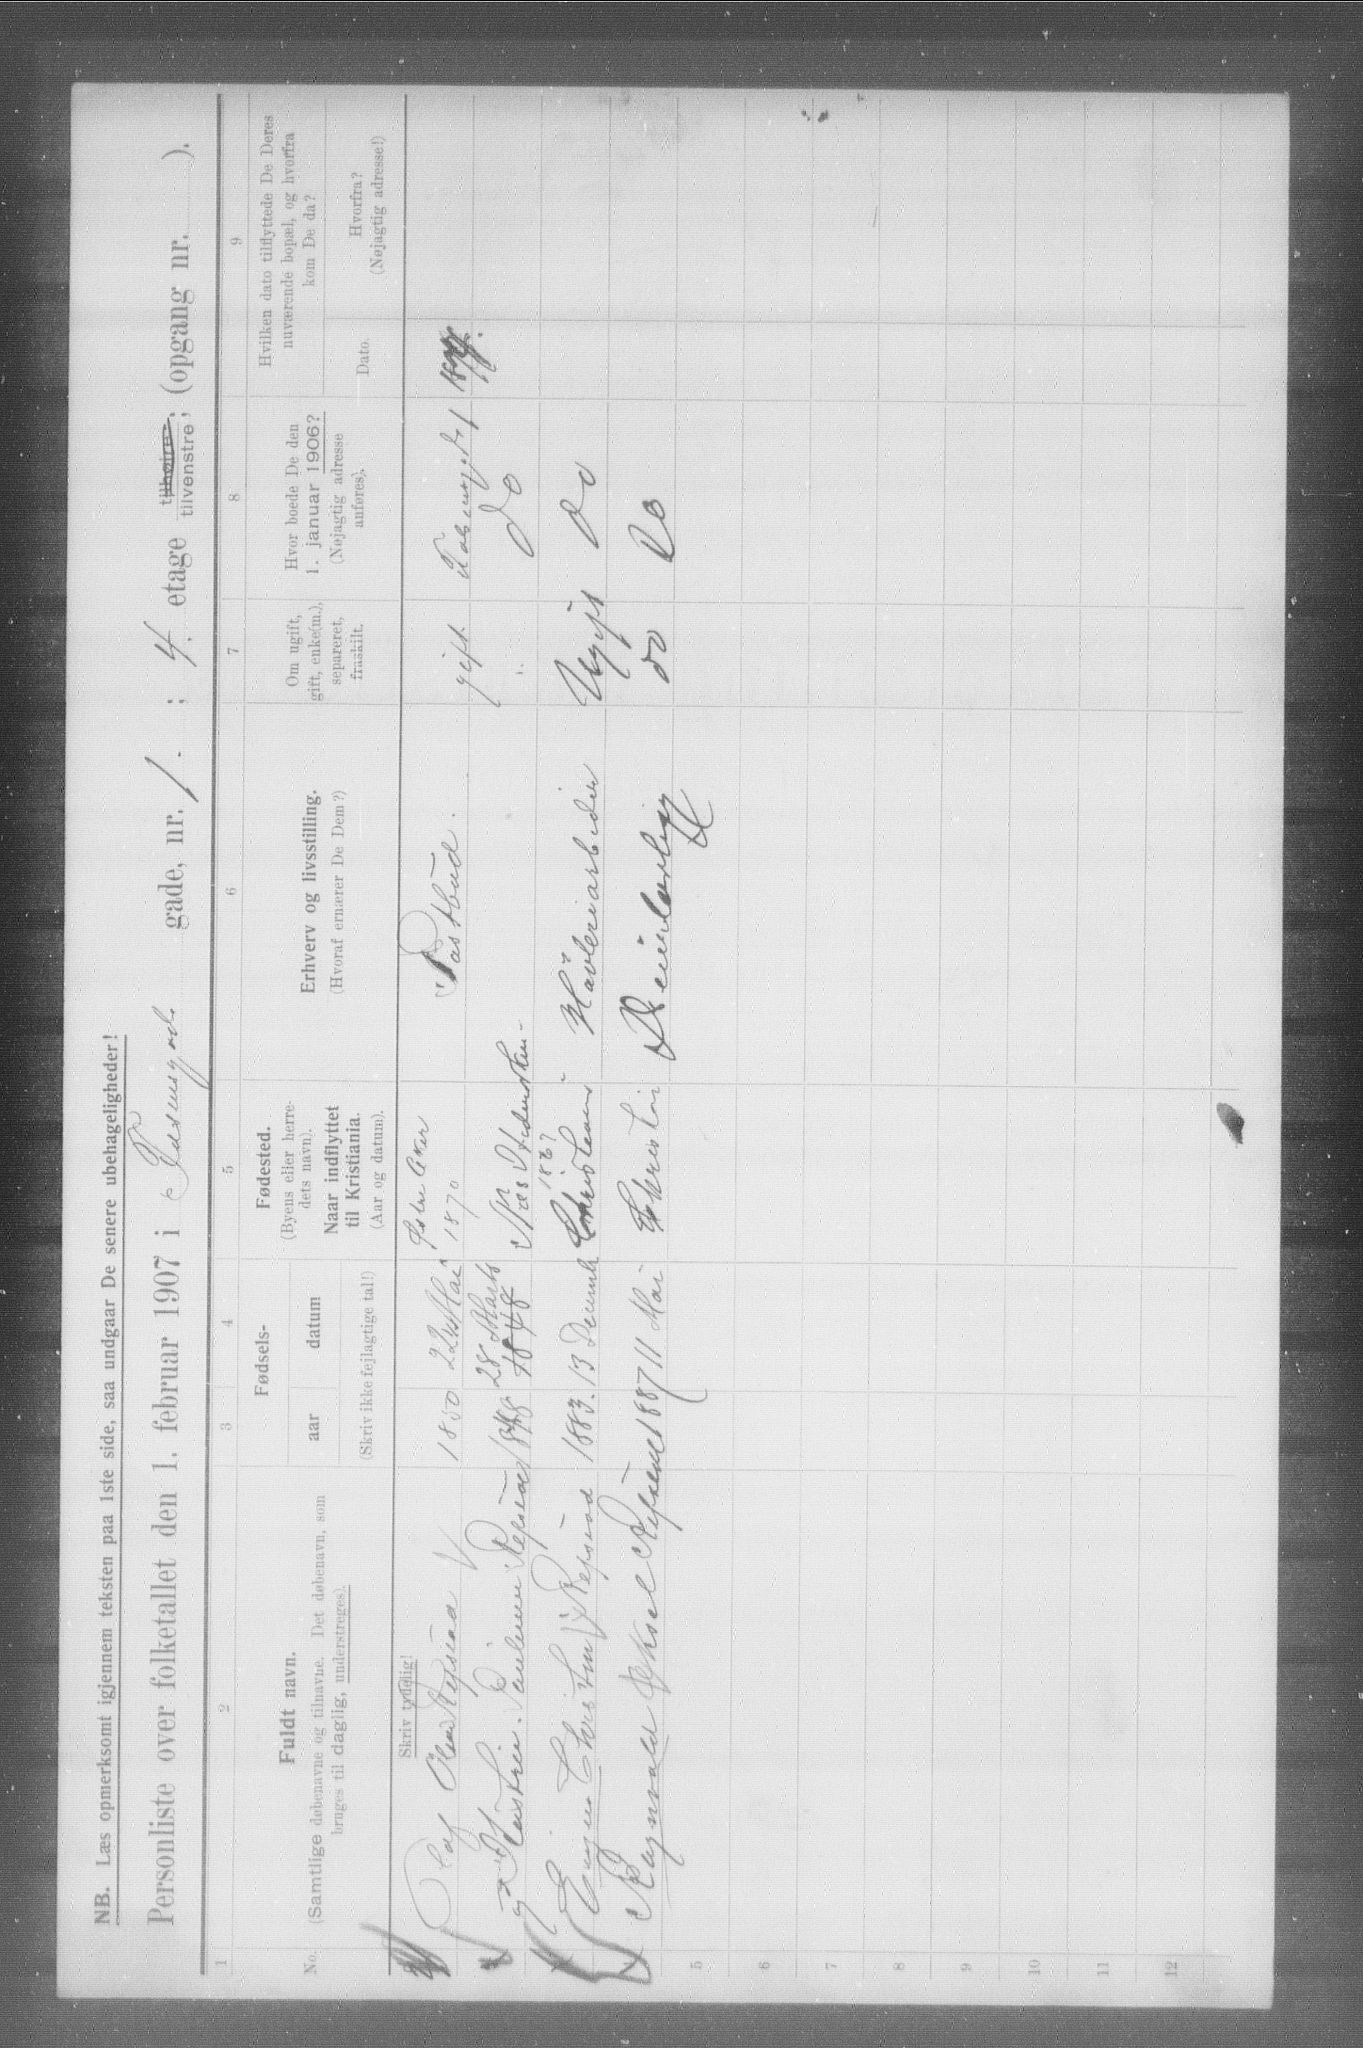 NB. Læs opmerksomt igjennem teksten paa 1ste side, saa undgaar De senere ubehageligheder!
Personliste over folketallet den 1. februar 1907 i gade, nr. 1. ; 4. etage tilhøire, tilvenstre; (opgang nr. ).
1 2 3 4 5 6 7 8 9
No.
Fuldt navn.
(Samtlige døbenavne og tilnavne. Det døbenavn, som
bruges til daglig, understreges).
Fødsels-
aar datum
(Skriv ikke fejlagtige tal!)
Fødested.
(Byens eller herre-
dets navn).
Naar indflyttet
til Kristiania.
(Aar og datum).
Erhverv og livsstilling.
(Hvoraf ernærer De Dem?)
Om ugift,
gift, enke(m.),
separeret,
fraskilt.
Hvor boede De den
1. januar 1906?
(Nøjagtig adresse
anføres).
Hvilken dato tilflyttede De Deres
nuværende bopæl, og hvorfra
kom De da?
Dato.
Hvorfra?
(Nøjagtig adresse!)
Skriv tydelig!
Olaf Olsen Refstad 1850 22 Mai Aker 1870 Postbud. gift
og Kristine Pauline Refstad 1848 28 Marts Næs Hedemarken Do
Christian Refstad 1883. 13 Decemb Høvleriarbeider Ugift Do
Ragnvald Aksel Refstad 1887 11 Mai do Do
5
6
7
8
9
10
11
12